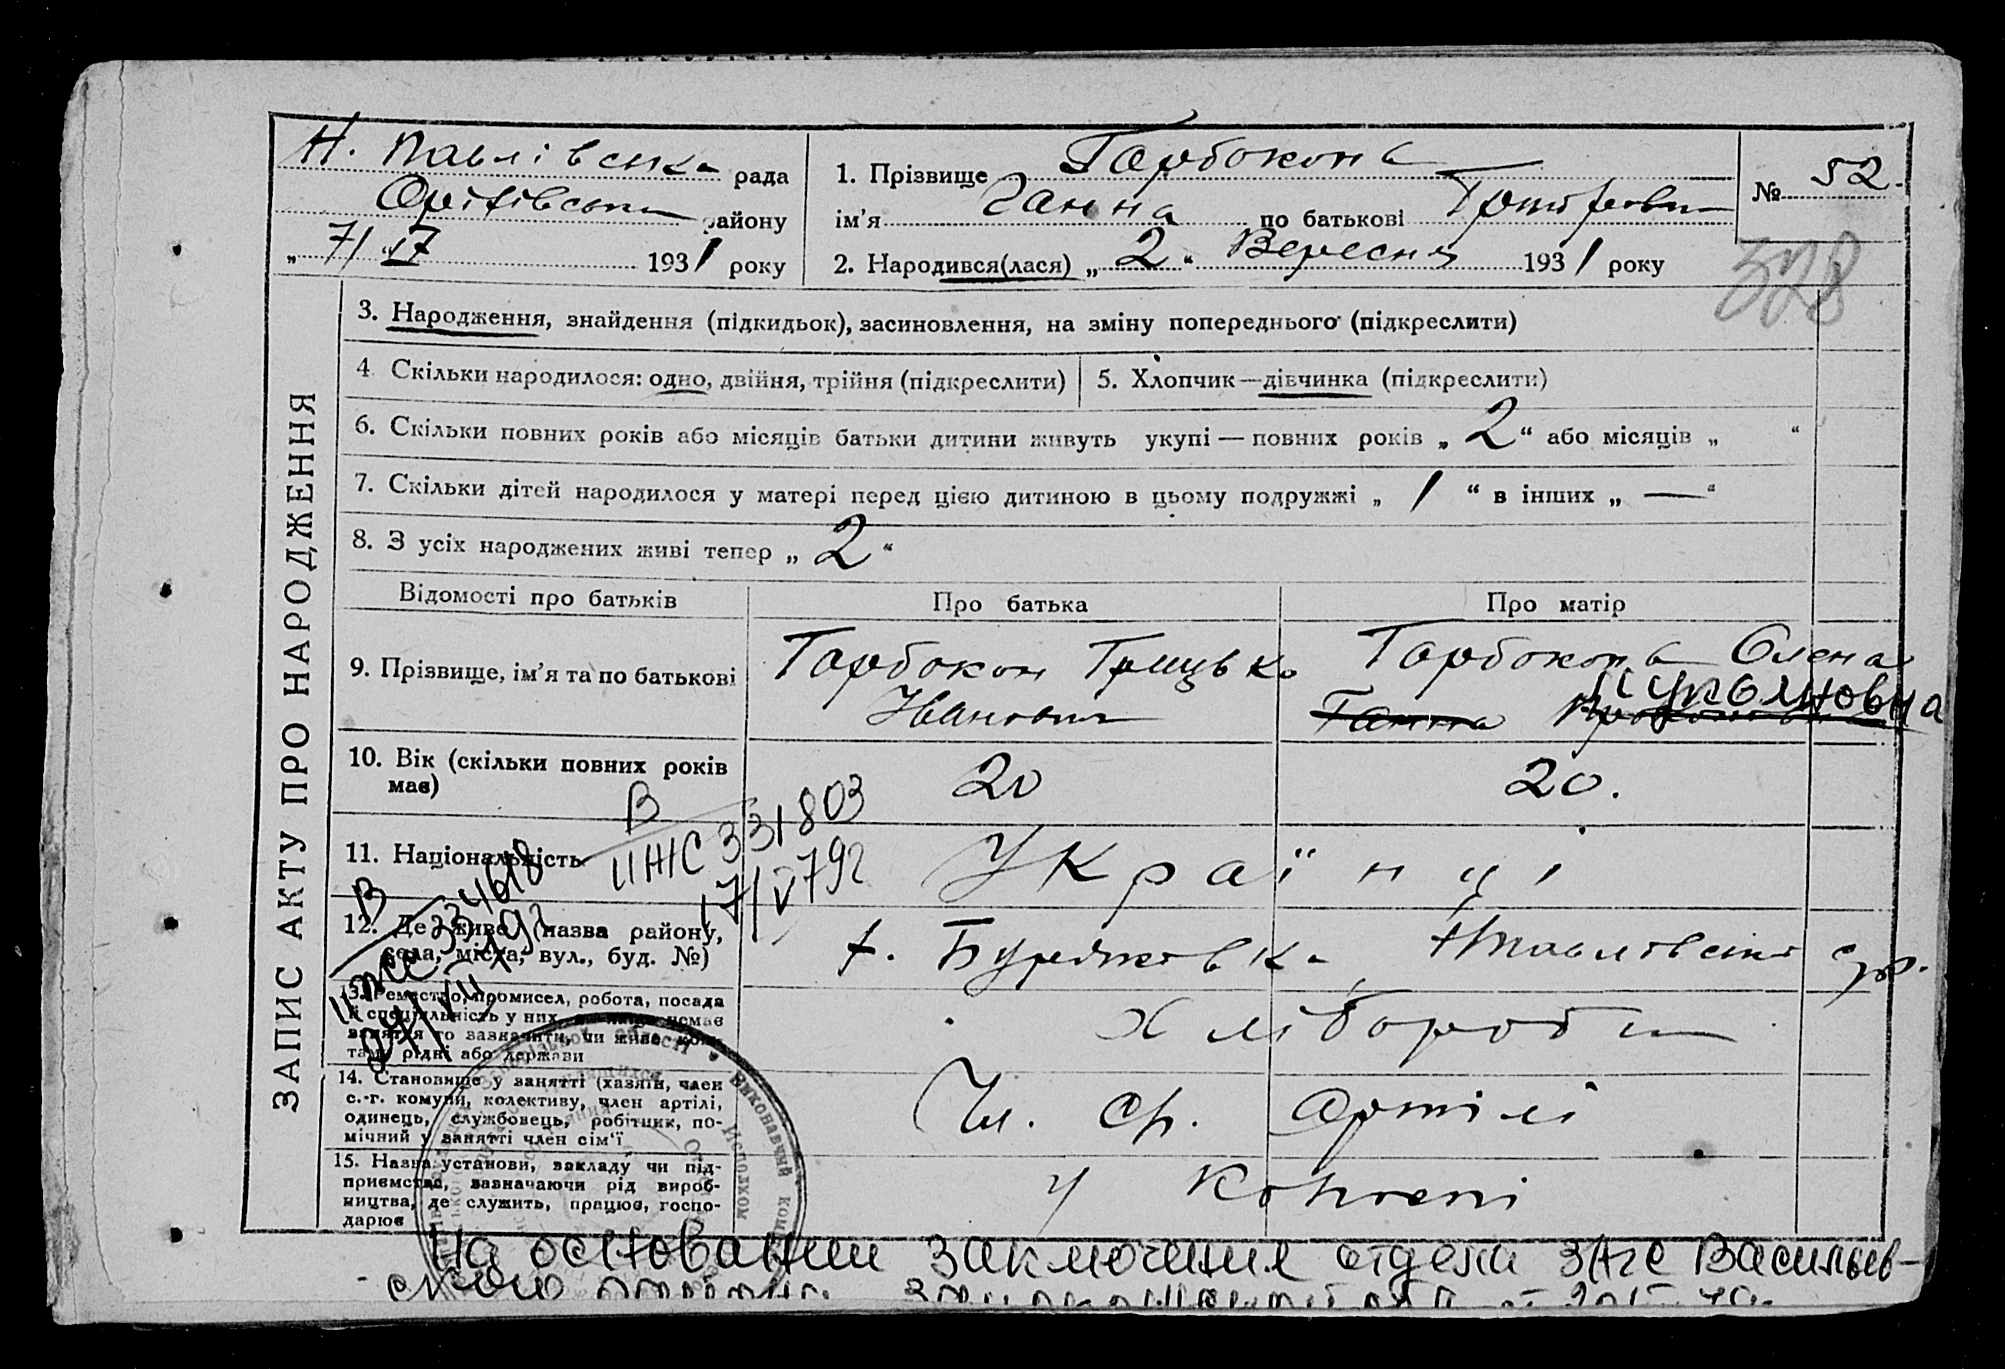 Н. Павлівська рада
Оріхівськи району
„ 7/ “ 17 1931 року
1. Прізвище Гарбоконь
ім’я Ганна по батькові
2. Народився(лася) „ 2 “ Вересня 1931 року
№ 52.
328
ЗАПИС АКТУ ПРО НАРОДЖЕННЯ
3. Народження, знайдення (підкидьок), засиновлення, на зміну попереднього (підкреслити)
4. Скільки народилося: одно, двійня, трійня (підкреслити)
5. Хлопчик—дівчинка (підкреслити)
6. Скільки повних років або місяців батьки дитини живуть укупі — повних років „ 2 “ або місяців „ “
7. Скільки дітей народилося у матері перед цією дитиною в цьому подружжі „ 1 “ в інших „ — “
8. З усіх народжених живі тепер „ 2 “
Відомості про батьків
Про батька
Про матір
9. Прізвище, ім’я та по батькові
Гарбокон Грицько
Іванович
Гарбоконь Олена
Ганна
10. Вік (скільки повних років
має)
20
20.
В
ІІЖС 331803
17/V 792
11. Національність
Українці
В
334618
12. Де живе (назва району,
села, міста, вул., буд. №)
х. Буряковка Нпавлівської с/р.
13. Ремество, промисел, робота, посада
й спеціяльність у них,
заняття то зазначити, чи живе
рідні або держави
Хлібороби
14. Становище у занятті (хазяїн, член
с.-г. комуни, колективу, член артілі,
одинець, службовець, робітник, по-
мічний у занятті член сім’ї
Чл. ср. Артілі
15. Назва установи, закладу чи під-
приємства, зазначаючи рід вироб-
ництва, де служить, працює, госпо-
дарює
у Колгоспі
Виконавчий
Исполком
На основании заключения отдела ЗАГС Васильев-
ского